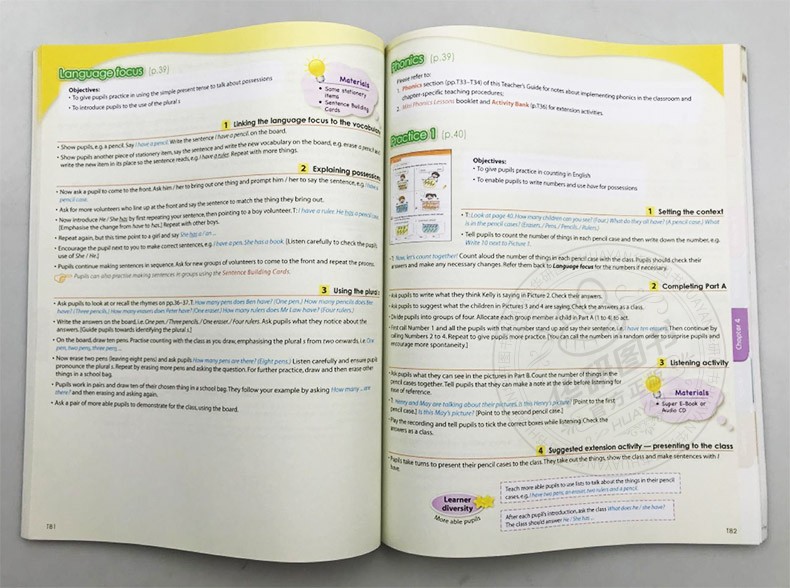 Language focus (p.39)
Objectives:
• To give pupils practice in using the simple present tense to talk about possessions
• To introduce pupils to the use of the plural s
Materials
• Some stationery
items
• Sentence Building
Cards
1 Linking the language focus to the vocabulary
• Show pupils, e.g. a pencil. Say I have a pencil. Write the sentence I have a pencil. on the board.
• Show pupils another piece of stationery item, say the sentence and write the new vocabulary on the board, e.g. erase a pencil and
write the new item in its place so the sentence reads, e.g. I have a ruler. Repeat with more things.
2 Explaining possession
• Now ask a pupil to come to the front. Ask him / her to bring out one thing and prompt him / her to say the sentence, e.g. I have a
pencil case.
• Ask for more volunteers who line up at the front and say the sentence to match the thing they bring out.
• Now introduce He / She has by first repeating your sentence, then pointing to a boy volunteer. T: I have a ruler. He has a pencil case.
[Emphasise the change from have to has.] Repeat with other boys.
• Repeat again, but this time point to a girl and say She has a / an ...
• Encourage the pupil next to you to make correct sentences, e.g. I have a pen. She has a book. [Listen carefully to check the pupils'
use of She / He.]
• Pupils continue making sentences in sequence. Ask for new groups of volunteers to come to the front and repeat the process.
Pupils can also practise making sentences in groups using the Sentence Building Cards.
3 Using the plural
• Ask pupils to look at or recall the rhymes on pp.36–37. T: How many pens does Ben have? (One pen.) How many pencils does Ben
have? (Three pencils.) How many erasers does Peter have? (One eraser.) How many rulers does Mr Law have? (Four rulers.)
• Write the answers on the board, i.e. One pen. / Three pencils. / One eraser. / Four rulers. Ask pupils what they notice about the
answers. [Guide pupils towards identifying the plural s.]
• On the board, draw ten pens. Practise counting with the class as you draw, emphasising the plural s from two onwards, i.e. One
pen, two pens, three pens ...
• Now erase two pens (leaving eight pens) and ask pupils How many pens are there? (Eight pens.) Listen carefully and ensure pupils
pronounce the plural s. Repeat by erasing more pens and asking the question. For further practice, draw and then erase other
things in a school bag.
• Pupils work in pairs and draw ten of their chosen thing in a school bag. They follow your example by asking How many ... are
there? and then erasing and asking again.
• Ask a pair of more able pupils to demonstrate for the class, using the board.
181
Phonics (p.39)
Please refer to:
1. Phonics section (pp.T33–T34) of this Teacher's Guide for notes about implementing phonics in the classroom and
chapter-specific teaching procedures;
2. Mini Phonics Lessons booklet and Activity Bank (p.T36) for extension activities.
Practice 1 (p.40)
Objectives:
• To give pupils practice in counting in English
• To enable pupils to write numbers and use have for possessions
1 Setting the context
• T: Look at page 40. How many children can you see? (Four.) What do they all have? (A pencil case.) What
is in the pencil cases? (Erasers. / Pens. / Pencils. / Rulers.)
• Tell pupils to count the number of things in each pencil case and then write down the number, e.g.
Write 10 next to Picture 1.
• T: Now, let's count together! Count aloud the number of things in each pencil case with the class. Pupils should check their
answers and make any necessary changes. Refer them back to Language focus for the numbers if necessary.
2 Completing Part A
• Ask pupils to write what they think Kelly is saying in Picture 2. Check their answers.
• Ask pupils to suggest what the children in Pictures 3 and 4 are saying. Check the answers as a class.
• Divide pupils into groups of four. Allocate each group member a child in Part A (1 to 4) to act.
• First call Number 1 and all the pupils with that number stand up and say their sentence, i.e. I have ten erasers. Then continue by
calling Numbers 2 to 4. Repeat to give pupils more practice. [You can call the numbers in a random order to surprise pupils and
encourage more spontaneity.]
Chapter 4
3 Listening activity
• Ask pupils what they can see in the pictures in Part B. Count the number of things in the
pencil cases together. Tell pupils that they can make a note at the side before listening for
ease of reference.
• T: Henry and May are talking about their pictures. Is this Henry's picture? [Point to the first
pencil case.] Is this May's picture? [Point to the second pencil case.]
• Play the recording and tell pupils to tick the correct boxes while listening. Check the
answers as a class.
Materials
• Super E-Book or
Audio CD
4 Suggested extension activity — presenting to the class
• Pupils take turns to present their pencil cases to the class. They take out the things, show the class and make sentences with I
have.
Learner
diversity
More able pupils
Teach more able pupils to use lists to talk about the things in their pencil
cases, e.g. I have two pens, an eraser, two rulers and a pencil.
After each pupil's introduction, ask the class What does he / she have?
The class should answer He / She has ...
182